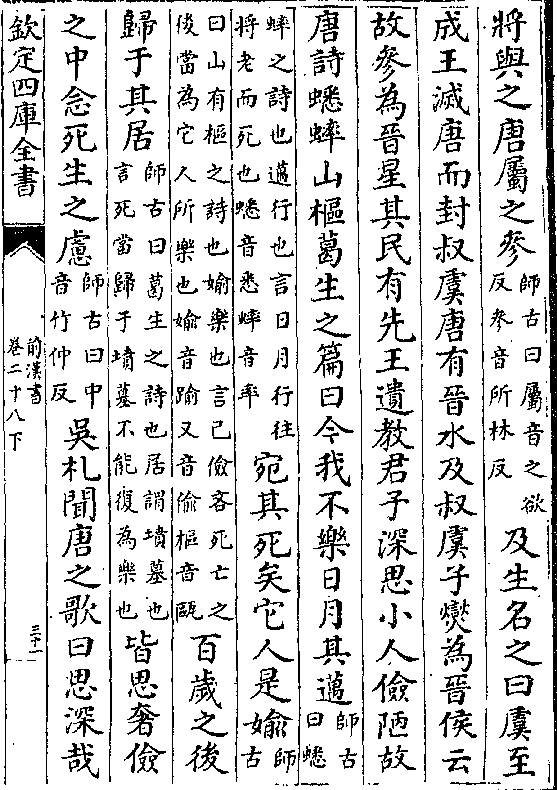 將與之唐屬之參師古曰屬音之欲反參音所林反及生名之曰虞至
成王滅唐而封叔虞唐有晉水及叔虞子燮為晉侯云
故參為晉星其民有先王遺教君子深思小人儉陋故
唐詩蟋蟀山樞葛生之篇曰今我不樂日月其邁師古曰蟋
蟀之詩也邁行也言日月行往將老而死也蟋音悉蟀音率宛其死矣它人是媮師古
曰山有樞之詩也媮樂也言己儉吝死亡之後當為它人所樂也媮音踰又音偷樞音甌百歲之後
歸于其居師古曰葛生之詩也居謂墳墓也言死當歸于墳墓不能復為樂也皆思奢儉
之中念死生之慮師古曰中音竹仲反吳札聞唐之歌曰思深哉
欽定四庫全書
前漢書
卷二十八下
三十一